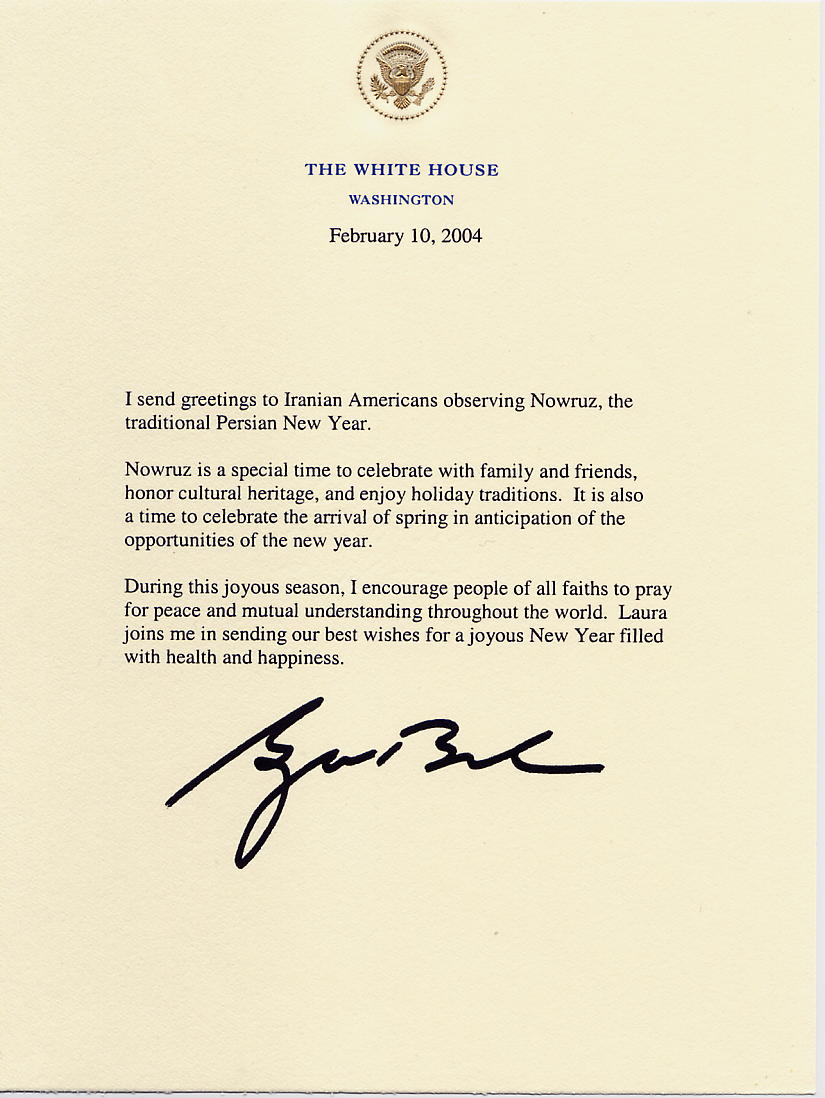 THE WHITE HOUSE
WASHINGTON
February 10, 2004
I send greetings to Iranian Americans observing Nowruz, the
traditional Persian New Year.
Nowruz is a special time to celebrate with family and friends,
honor cultural heritage, and enjoy holiday traditions.  It is also
a time to celebrate the arrival of spring in anticipation of the
opportunities of the new year.
During this joyous season, I encourage people of all faiths to pray
for peace and mutual understanding throughout the world.  Laura
joins me in sending our best wishes for a joyous New Year filled
with health and happiness.